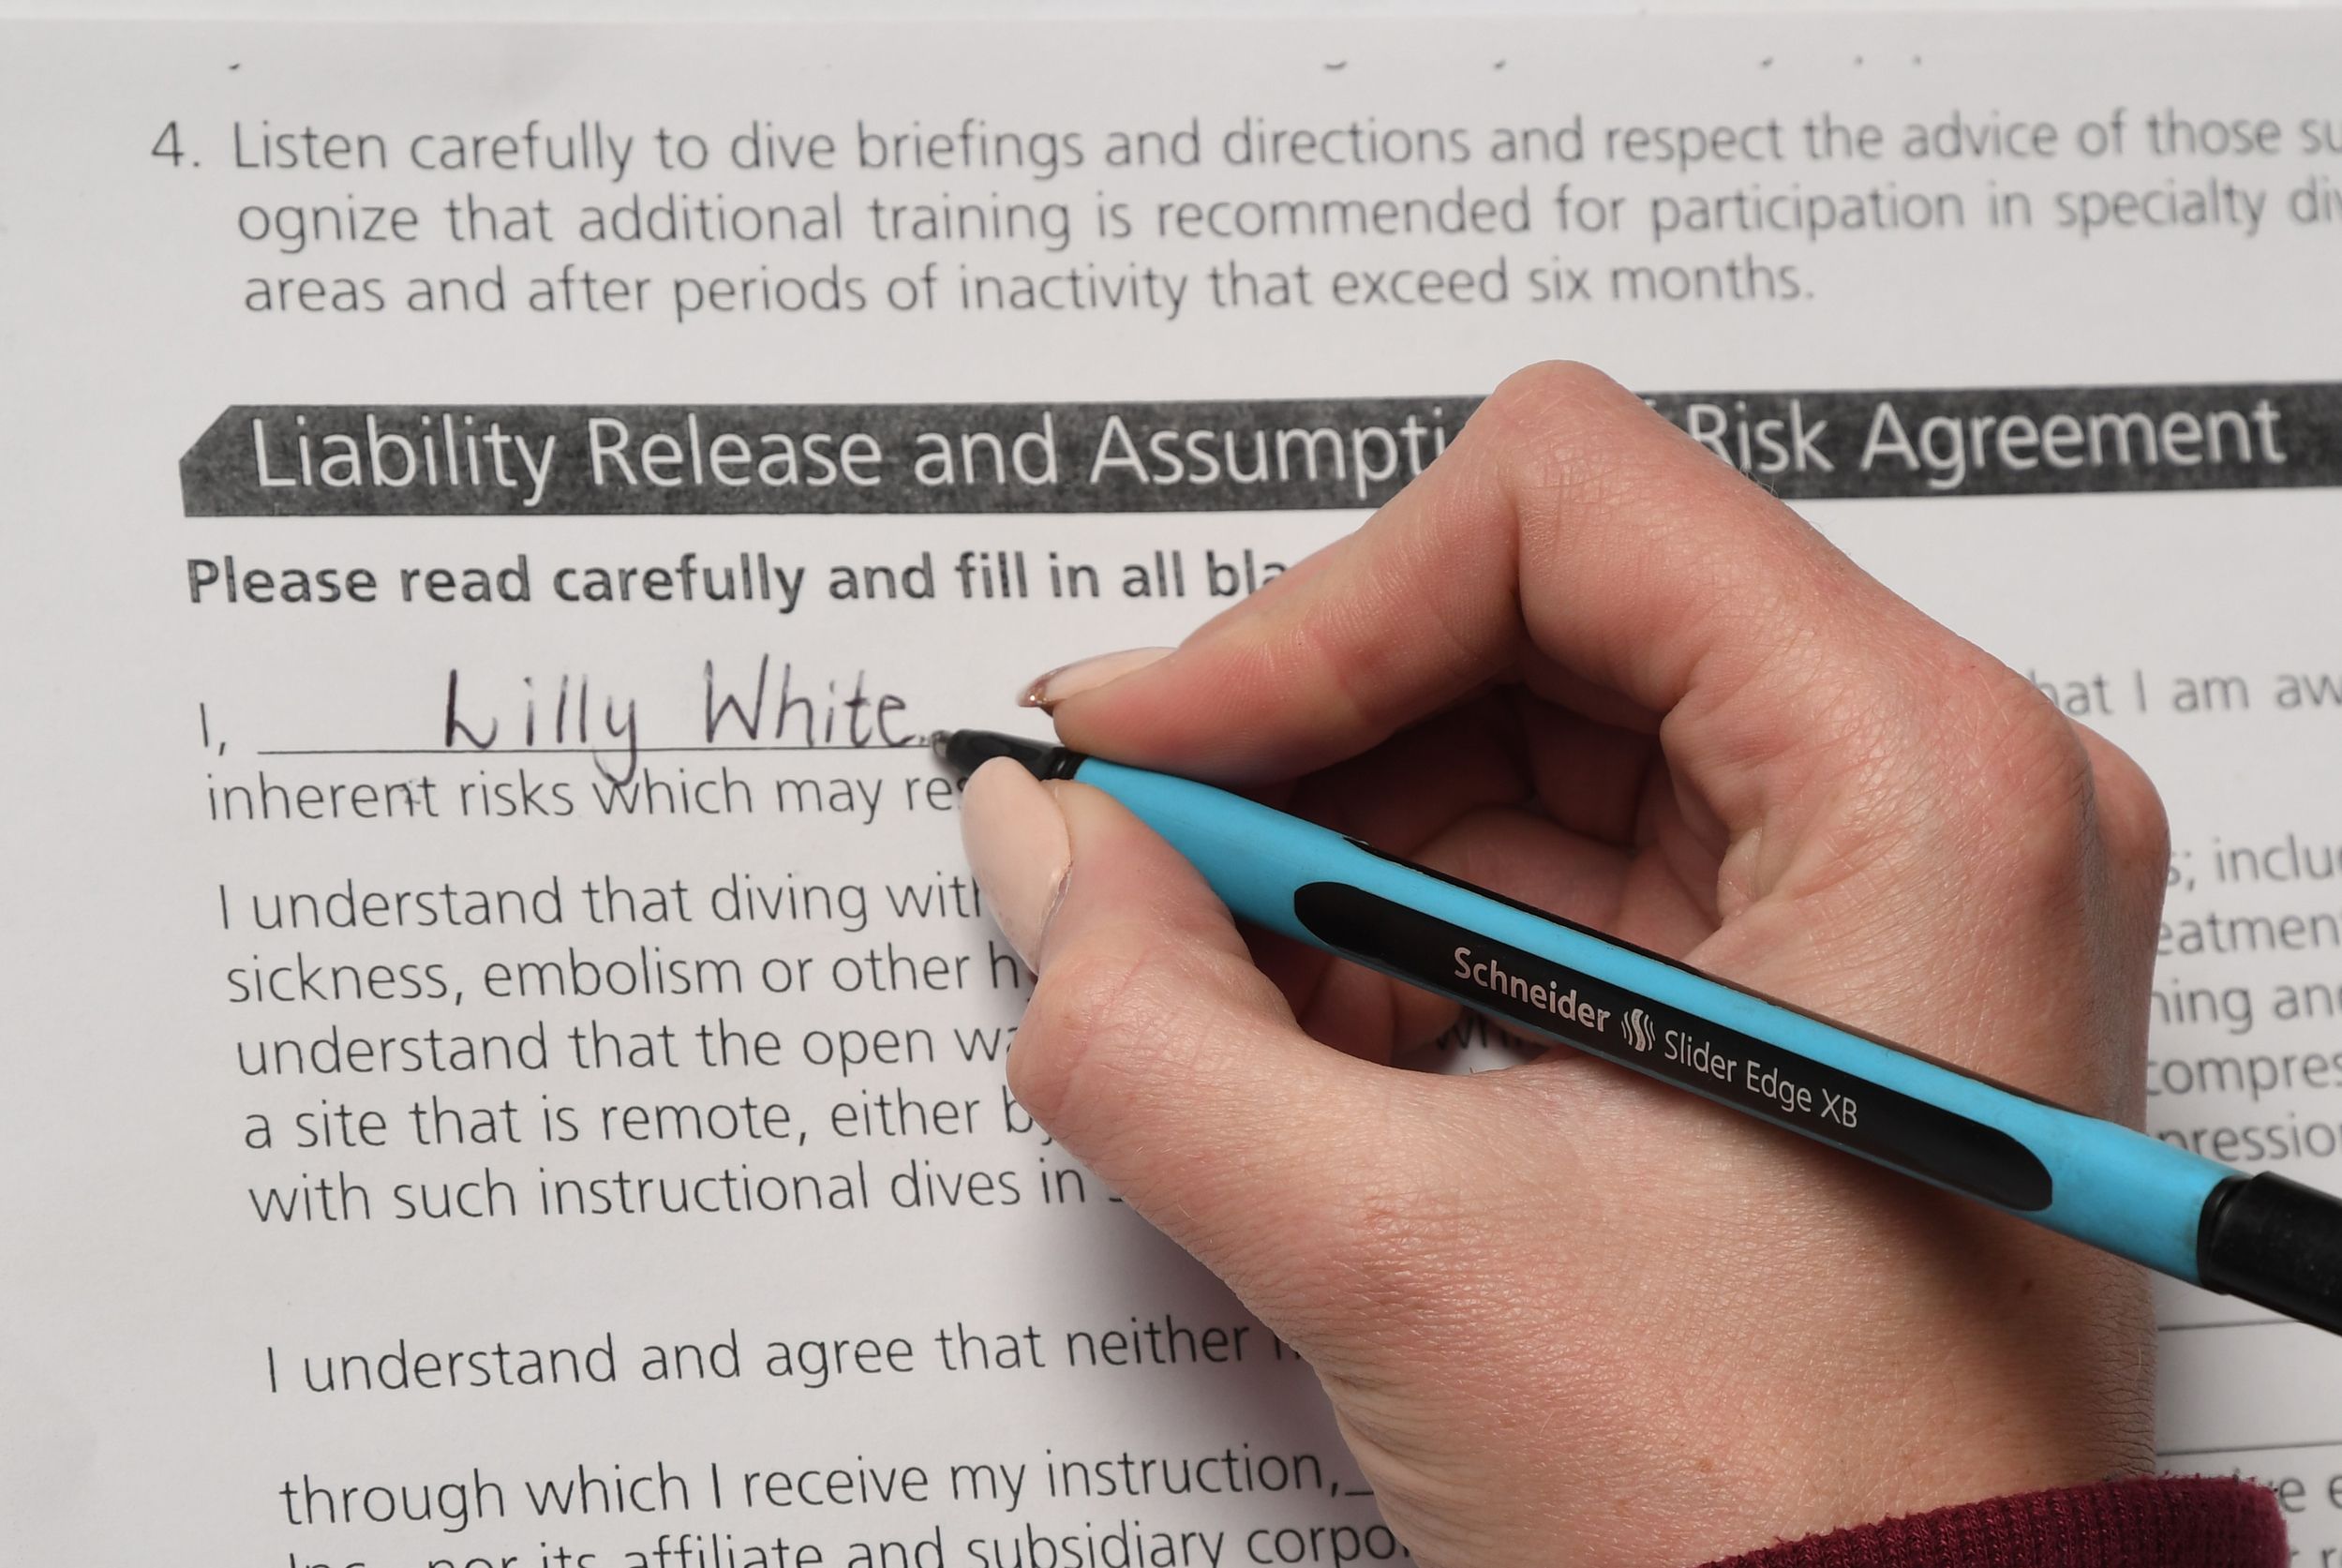 4. Listen carefully to dive briefings and directions and respect the advice of those
ognize that additional training is recommended for participation in specialty
areas and after periods of inactivity that exceed six months.
Liability Release and Risk Agreement
Please read carefully and fill in all
I, Lilly White hat I am
inherent risks which may
I understand that diving
sickness, embolism or other
understand that the open
a site that is remote, either
with such instructional dives in
I understand and agree that neither
through which I receive my instruction,
nor its affiliate and subsidiary
Schneider Slider Edge XB